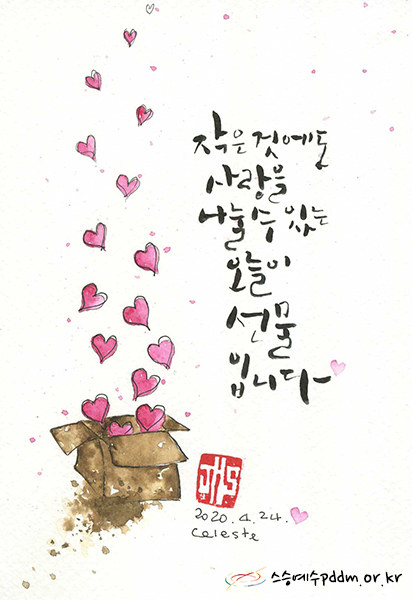 작은 것에도
사랑을
나눌 수 있는
오늘이
선물
입니다
JHS
2020. 4. 24.
Celeste
스승예수pddm.or.kr